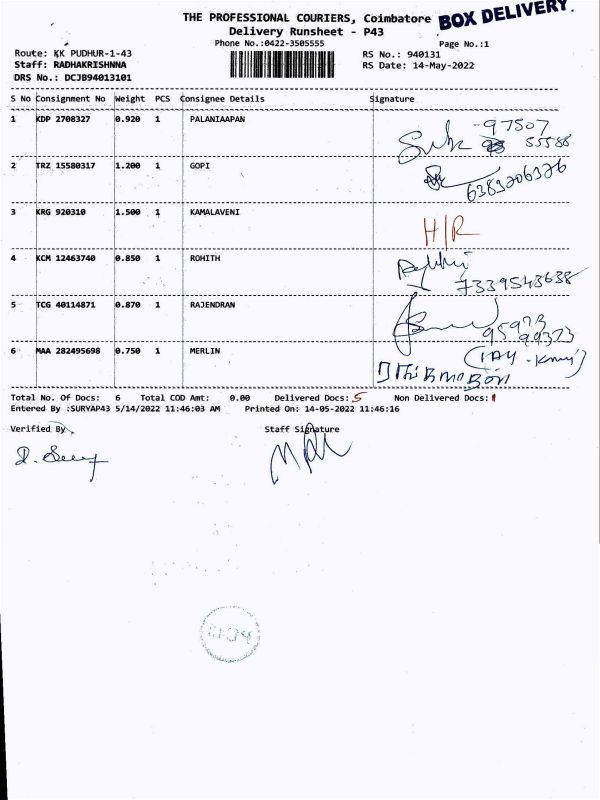 THE PROFESSIONAL COURIERS, Coimbatore BOX DELIVERY.
Delivery Runsheet - P43
Phone No.:0422-3505555 Page No.:1
Route: KK PUDHUR-1-43 RS No.: 940131
Staff: RADHAKRISHNNA RS Date: 14-May-2022
DRS No.: DCJB94013101
S No Consignment No Weight PCS Consignee Details Signature
1 KDP 2708327 0.920 1 PALANIAAPAN
97507
55588
2 TRZ 15580317 1.200 1 GOPI
6383206326
3 KRG 920310 1.500 1 KAMALAVENI
H/R
4 KCM 12463740 0.850 1 ROHITH
7339543638
5 TCG 40114871 0.870 1 RAJENDRAN
95973
99323
6 MAA 282495698 0.750 1 MERLIN
Total No. Of Docs: 6 Total COD Amt: 0.00 Delivered Docs: 5 Non Delivered Docs: 1
Entered By :SURYAP43 5/14/2022 11:46:03 AM Printed On: 14-05-2022 11:46:16
Verified By Staff Signature